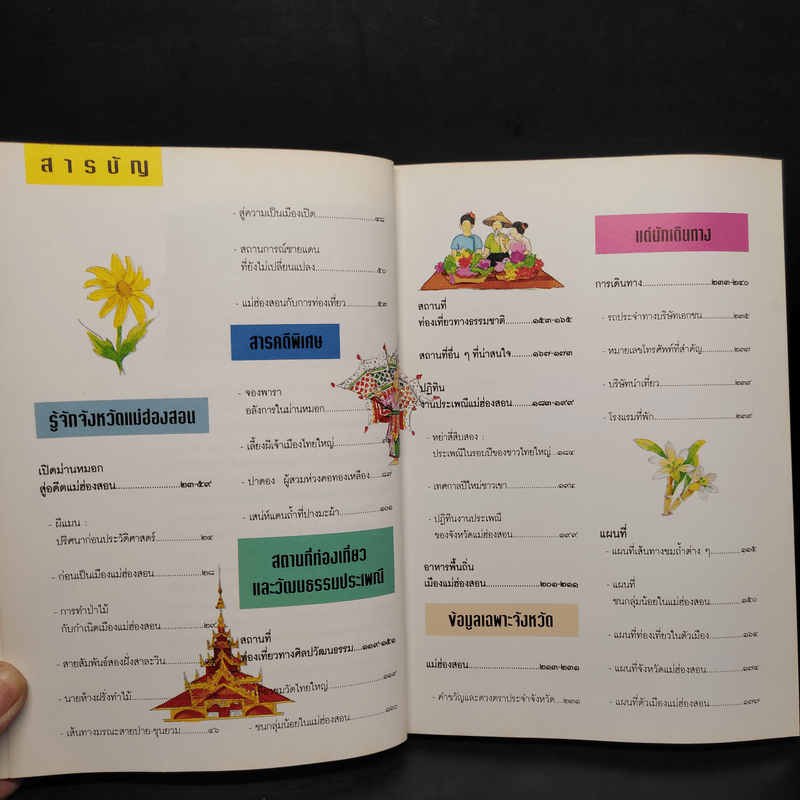 สารบัญ
รู้จักจังหวัดแม่ฮ่องสอน
เปิดม่านหมอก
สู่อดีตแม่ฮ่องสอน..................๒๓-๕๙
- ผีแมน :
ปริศนาก่อนประวัติศาสตร์............๒๔
- ก่อนเป็นเมืองแม่ฮ่องสอน............๒๘
- การทำป่าไม้
กับกำเนิดเมืองแม่ฮ่องสอน...........๒๙
- สายสัมพันธ์สองฝั่งสาละวิน
- นายห้างฝรั่งทำไม้
- เส้นทางมรณะสายปาย-ขุนยวม......๔๖
- สู่ความเป็นเมืองเปิด...................๔๘
- สถานการณ์ชายแดน
ที่ยังไม่เปลี่ยนแปลง...................๕๐
- แม่ฮ่องสอนกับการท่องเที่ยว.........๕๓
สารคดีพิเศษ
- จองพารา
อลังการในม่านหมอก
- เลี้ยงผีเจ้าเมืองไทยใหญ่
- ปาดอง ผู้สวมห่วงคอทองเหลือง....๘๙
- เสน่ห์แดนถ้ำที่ปางมะผ้า............๑๐๑
สถานที่ท่องเที่ยว
และวัฒนธรรมประเพณี
สถานที่
ท่องเที่ยวทางศิลปวัฒนธรรม....๑๑๙-๑๕๑
วัดไทยใหญ่...............๑๑๙
- ชนกลุ่มน้อยในแม่ฮ่องสอน.........๑๖๐
สถานที่
ท่องเที่ยวทางธรรมชาติ..........๑๕๓-๑๖๕
สถานที่อื่น ๆ ที่น่าสนใจ.....๑๖๗-๑๗๓
ปฏิทิน
งานประเพณีแม่ฮ่องสอน.......๑๘๓-๑๙๙
- หย่าสี่สิบสอง :
ประเพณีในรอบปีของชาวไทยใหญ่...๑๘๔
- เทศกาลปีใหม่ชาวเขา...............๑๙๔
- ปฏิทินงานประเพณี
ของจังหวัดแม่ฮ่องสอน.............๑๙๙
อาหารพื้นถิ่น
เมืองแม่ฮ่องสอน...............๒๐๑-๒๑๑
ข้อมูลเฉพาะจังหวัด
แม่ฮ่องสอน......................๒๑๓-๒๓๑
- คำขวัญและดวงตราประจำจังหวัด....๒๓๑
แด่นักเดินทาง
การเดินทาง....................๒๓๓-๒๔๐
- รถประจำทางบริษัทเอกชน..........๒๓๕
- หมายเลขโทรศัพท์ที่สำคัญ.........๒๓๗
- บริษัทนำเที่ยว.........................๒๓๙
- โรงแรมที่พัก..........................๒๓๙
แผนที่
- แผนที่เส้นทางชมถ้ำต่าง ๆ.........๑๑๕
- แผนที่
ชนกลุ่มน้อยในแม่ฮ่องสอน..........๑๕๐
- แผนที่ท่องเที่ยวในตัวเมือง.........๑๖๔
- แผนที่จังหวัดแม่ฮ่องสอน...........๑๗๔
- แผนที่ตัวเมืองแม่ฮ่องสอน..........๑๗๗